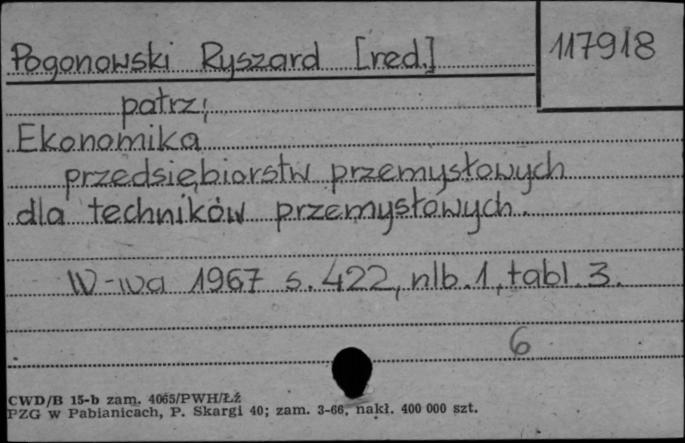 Pogonowski Ryszard [red.]
117918
patrz:
Ekonomika
przedsiębiorstw przemysłowych
dla techników przemysłowych.
W-wa 1967 s. 422, nlb. 1, tabl. 3.
6
CWD/B 15-b zam. 4065/PWH/Łź
PZG w Pabianicach, P. Skargi 40; zam. 3-66, nakł. 400 000 szt.